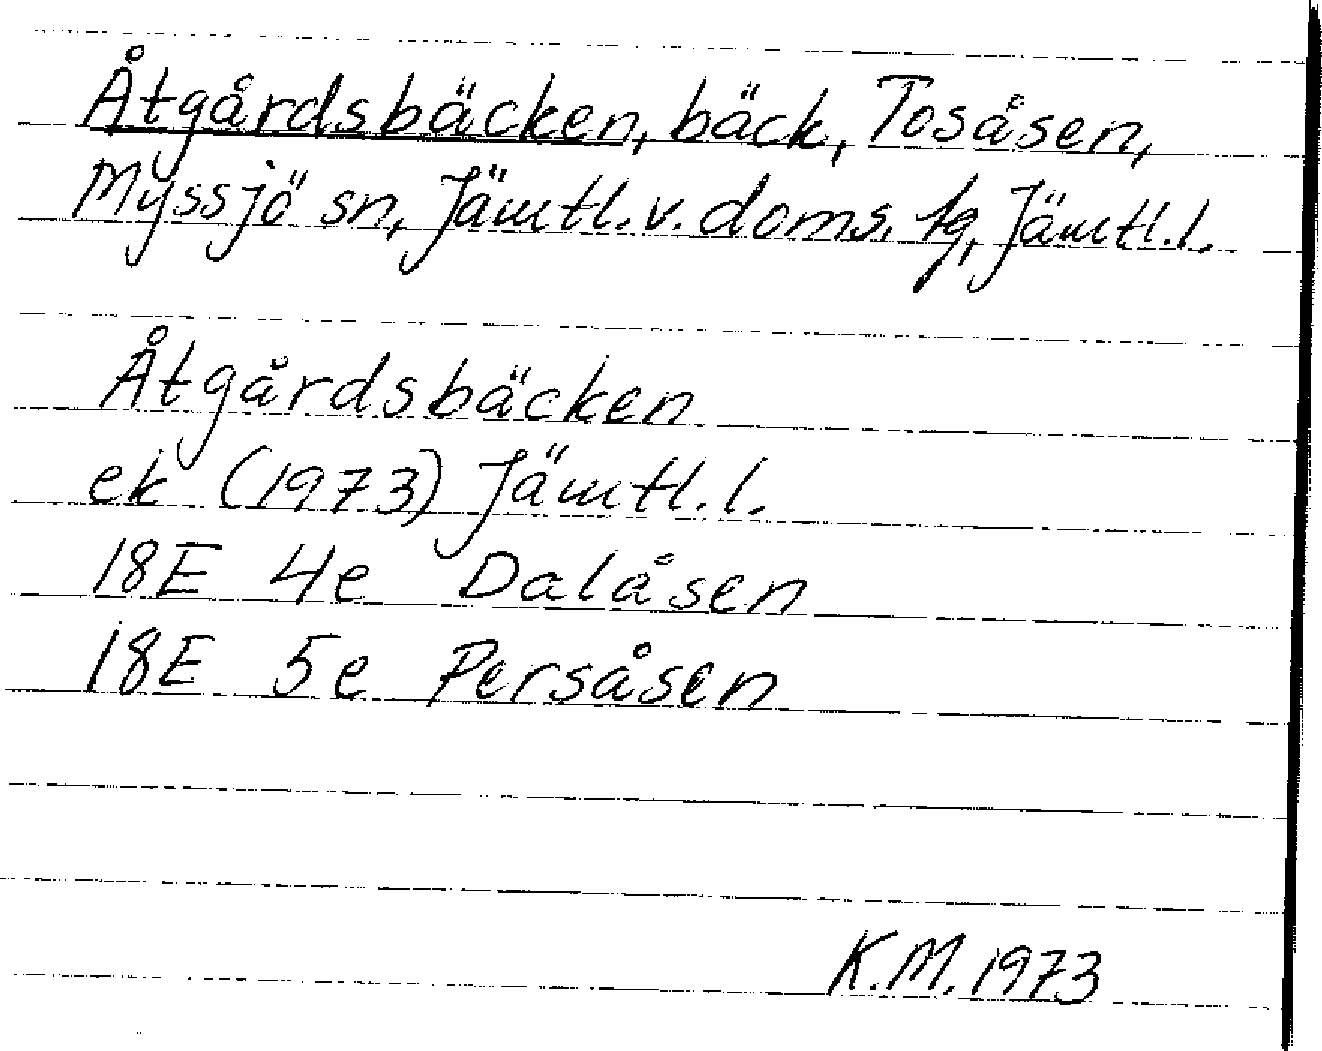 Åtgårdsbäcken, bäck, Tosåsen,
Myssjö sn, Jämtl. v. doms. fg, Jämtl. l.
Åtgårdsbäcken
ek (1973) Jämtl. l.
18E 4e Dalåsen
18E 5e Persåsen
K.M. 1973